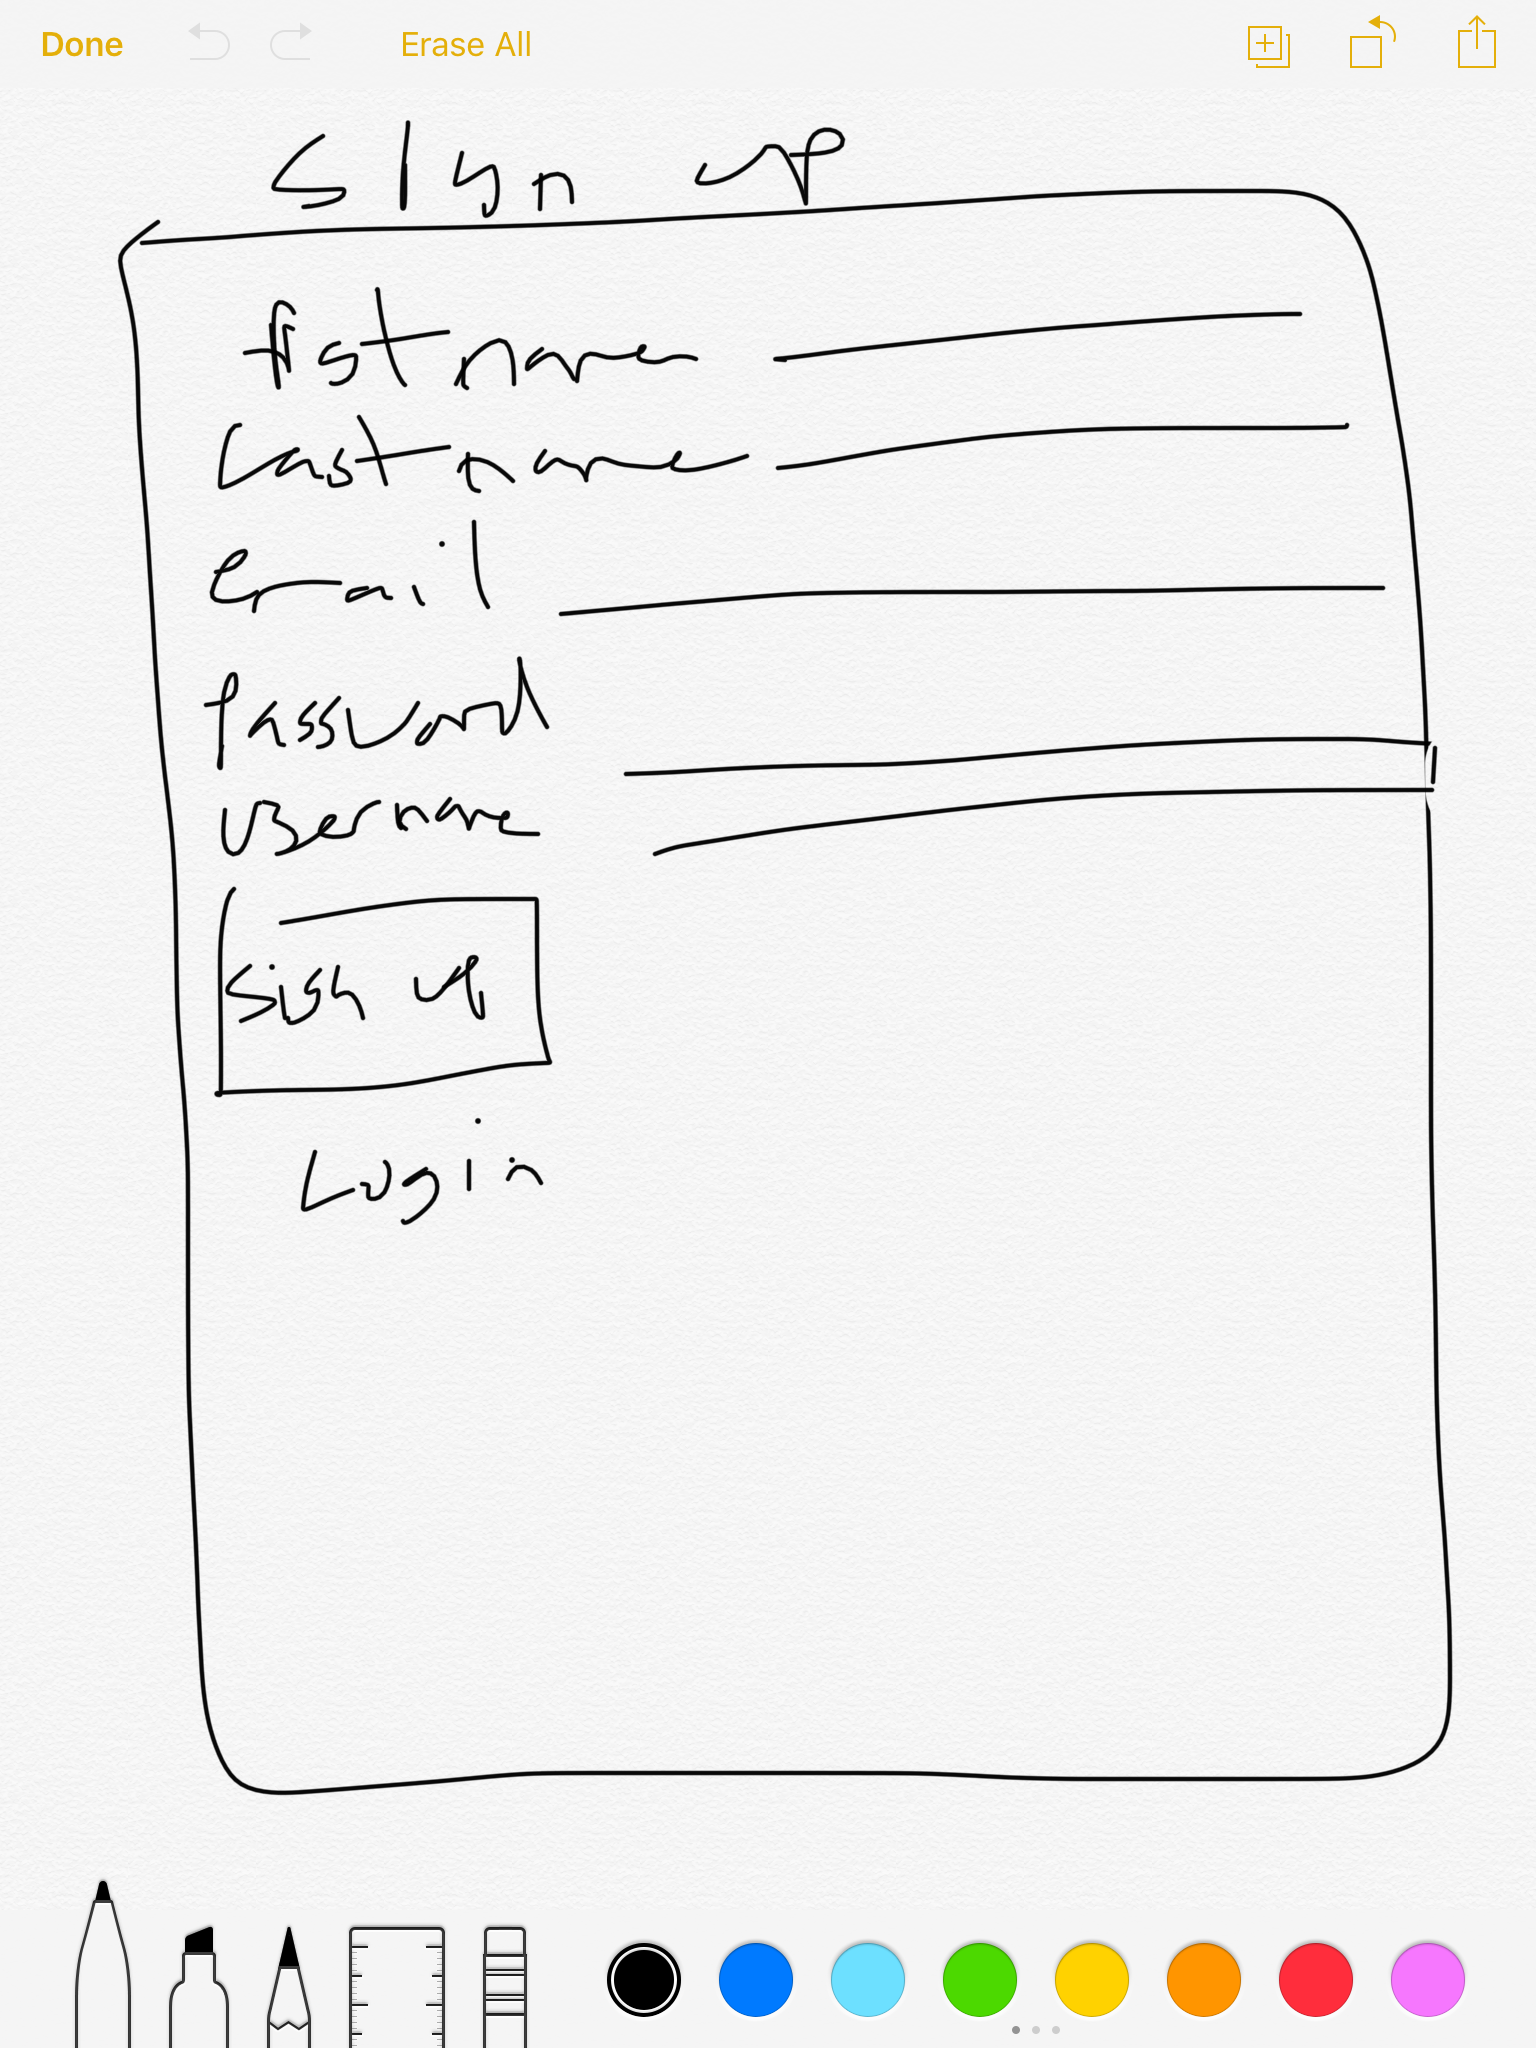 Done Erase All
Sign up
fist name
Last name
email
password
username
Sign up
Login